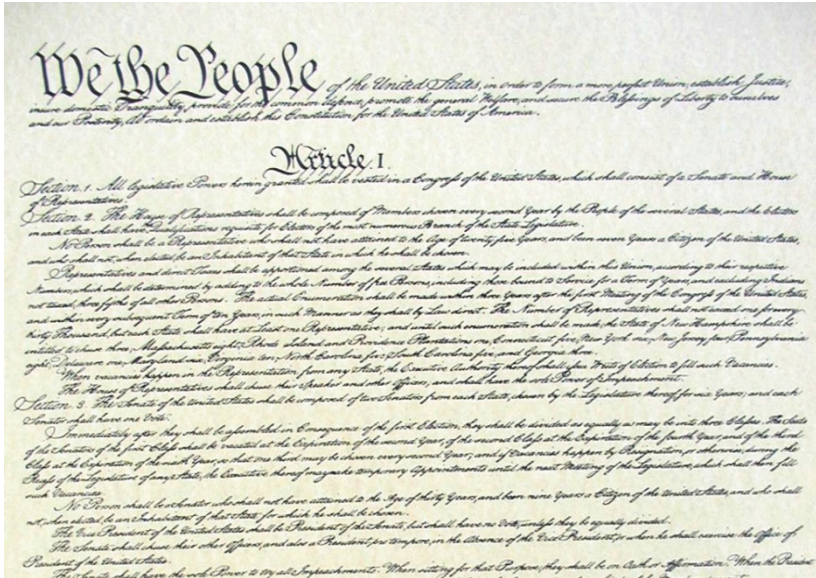 We the People of the United States, in order to form a more perfect Union, establish Justice,
insure domestic Tranquility, provide for the common defence, promote the general Welfare, and secure the Blessings of Liberty to ourselves
and our Posterity, do ordain and establish this Constitution for the United States of America.
Article. I.
Section. 1. All legislative Powers herein granted shall be vested in a Congress of the United States, which shall consist of a Senate and House
of Representatives.
Section. 2. The House of Representatives shall be composed of Members chosen every second Year by the People of the several States, and the Electors
in each State shall have Qualifications requisite for Electors of the most numerous Branch of the State Legislature.
No Person shall be a Representative who shall not have attained to the Age of twenty five Years, and been seven Years a Citizen of the United States,
and who shall not, when elected, be an Inhabitant of that State in which he shall be chosen.
Representatives and direct Taxes shall be apportioned among the several States which may be included within this Union, according to their respective
Numbers, which shall be determined by adding to the whole Number of free Persons, including those bound to Service for a Term of Years, and excluding Indians
not taxed, three fifths of all other Persons. The actual Enumeration shall be made within three Years after the first Meeting of the Congress of the United States,
and within every subsequent Term of ten Years, in such Manner as they shall by Law direct. The Number of Representatives shall not exceed one for every
thirty Thousand, but each State shall have at Least one Representative; and until such enumeration shall be made, the State of New Hampshire shall be
entitled to chuse three, Massachusetts eight, Rhode Island and Providence Plantations one, Connecticut five, New York six, New Jersey four, Pennsylvania
eight, Delaware one, Maryland six, Virginia ten, North Carolina five, South Carolina five, and Georgia three.
When vacancies happen in the Representation from any State, the Executive Authority thereof shall issue Writs of Election to fill such Vacancies.
The House of Representatives shall chuse their Speaker and other Officers; and shall have the sole Power of Impeachment.
Section. 3. The Senate of the United States shall be composed of two Senators from each State, chosen by the Legislature thereof for six Years; and each
Senator shall have one Vote.
Immediately after they shall be assembled in Consequence of the first Election, they shall be divided as equally as may be into three Classes. The Seats
of the Senators of the first Class shall be vacated at the Expiration of the second Year, of the second Class at the Expiration of the fourth Year, and of the third
Class at the Expiration of the sixth Year, so that one third may be chosen every second Year; and if Vacancies happen by Resignation, or otherwise, during the
Recess of the Legislature of any State, the Executive thereof may make temporary Appointments until the next Meeting of the Legislature, which shall then fill
such Vacancies.
No Person shall be a Senator who shall not have attained to the Age of thirty Years, and been nine Years a Citizen of the United States, and who shall
not, when elected, be an Inhabitant of that State for which he shall be chosen.
The Vice President of the United States shall be President of the Senate, but shall have no Vote, unless they be equally divided.
The Senate shall chuse their other Officers, and also a President pro tempore, in the Absence of the Vice President, or when he shall exercise the Office of
President of the United States.
The Senate shall have the sole Power to try all Impeachments. When sitting for that Purpose, they shall be on Oath or Affirmation. When the President